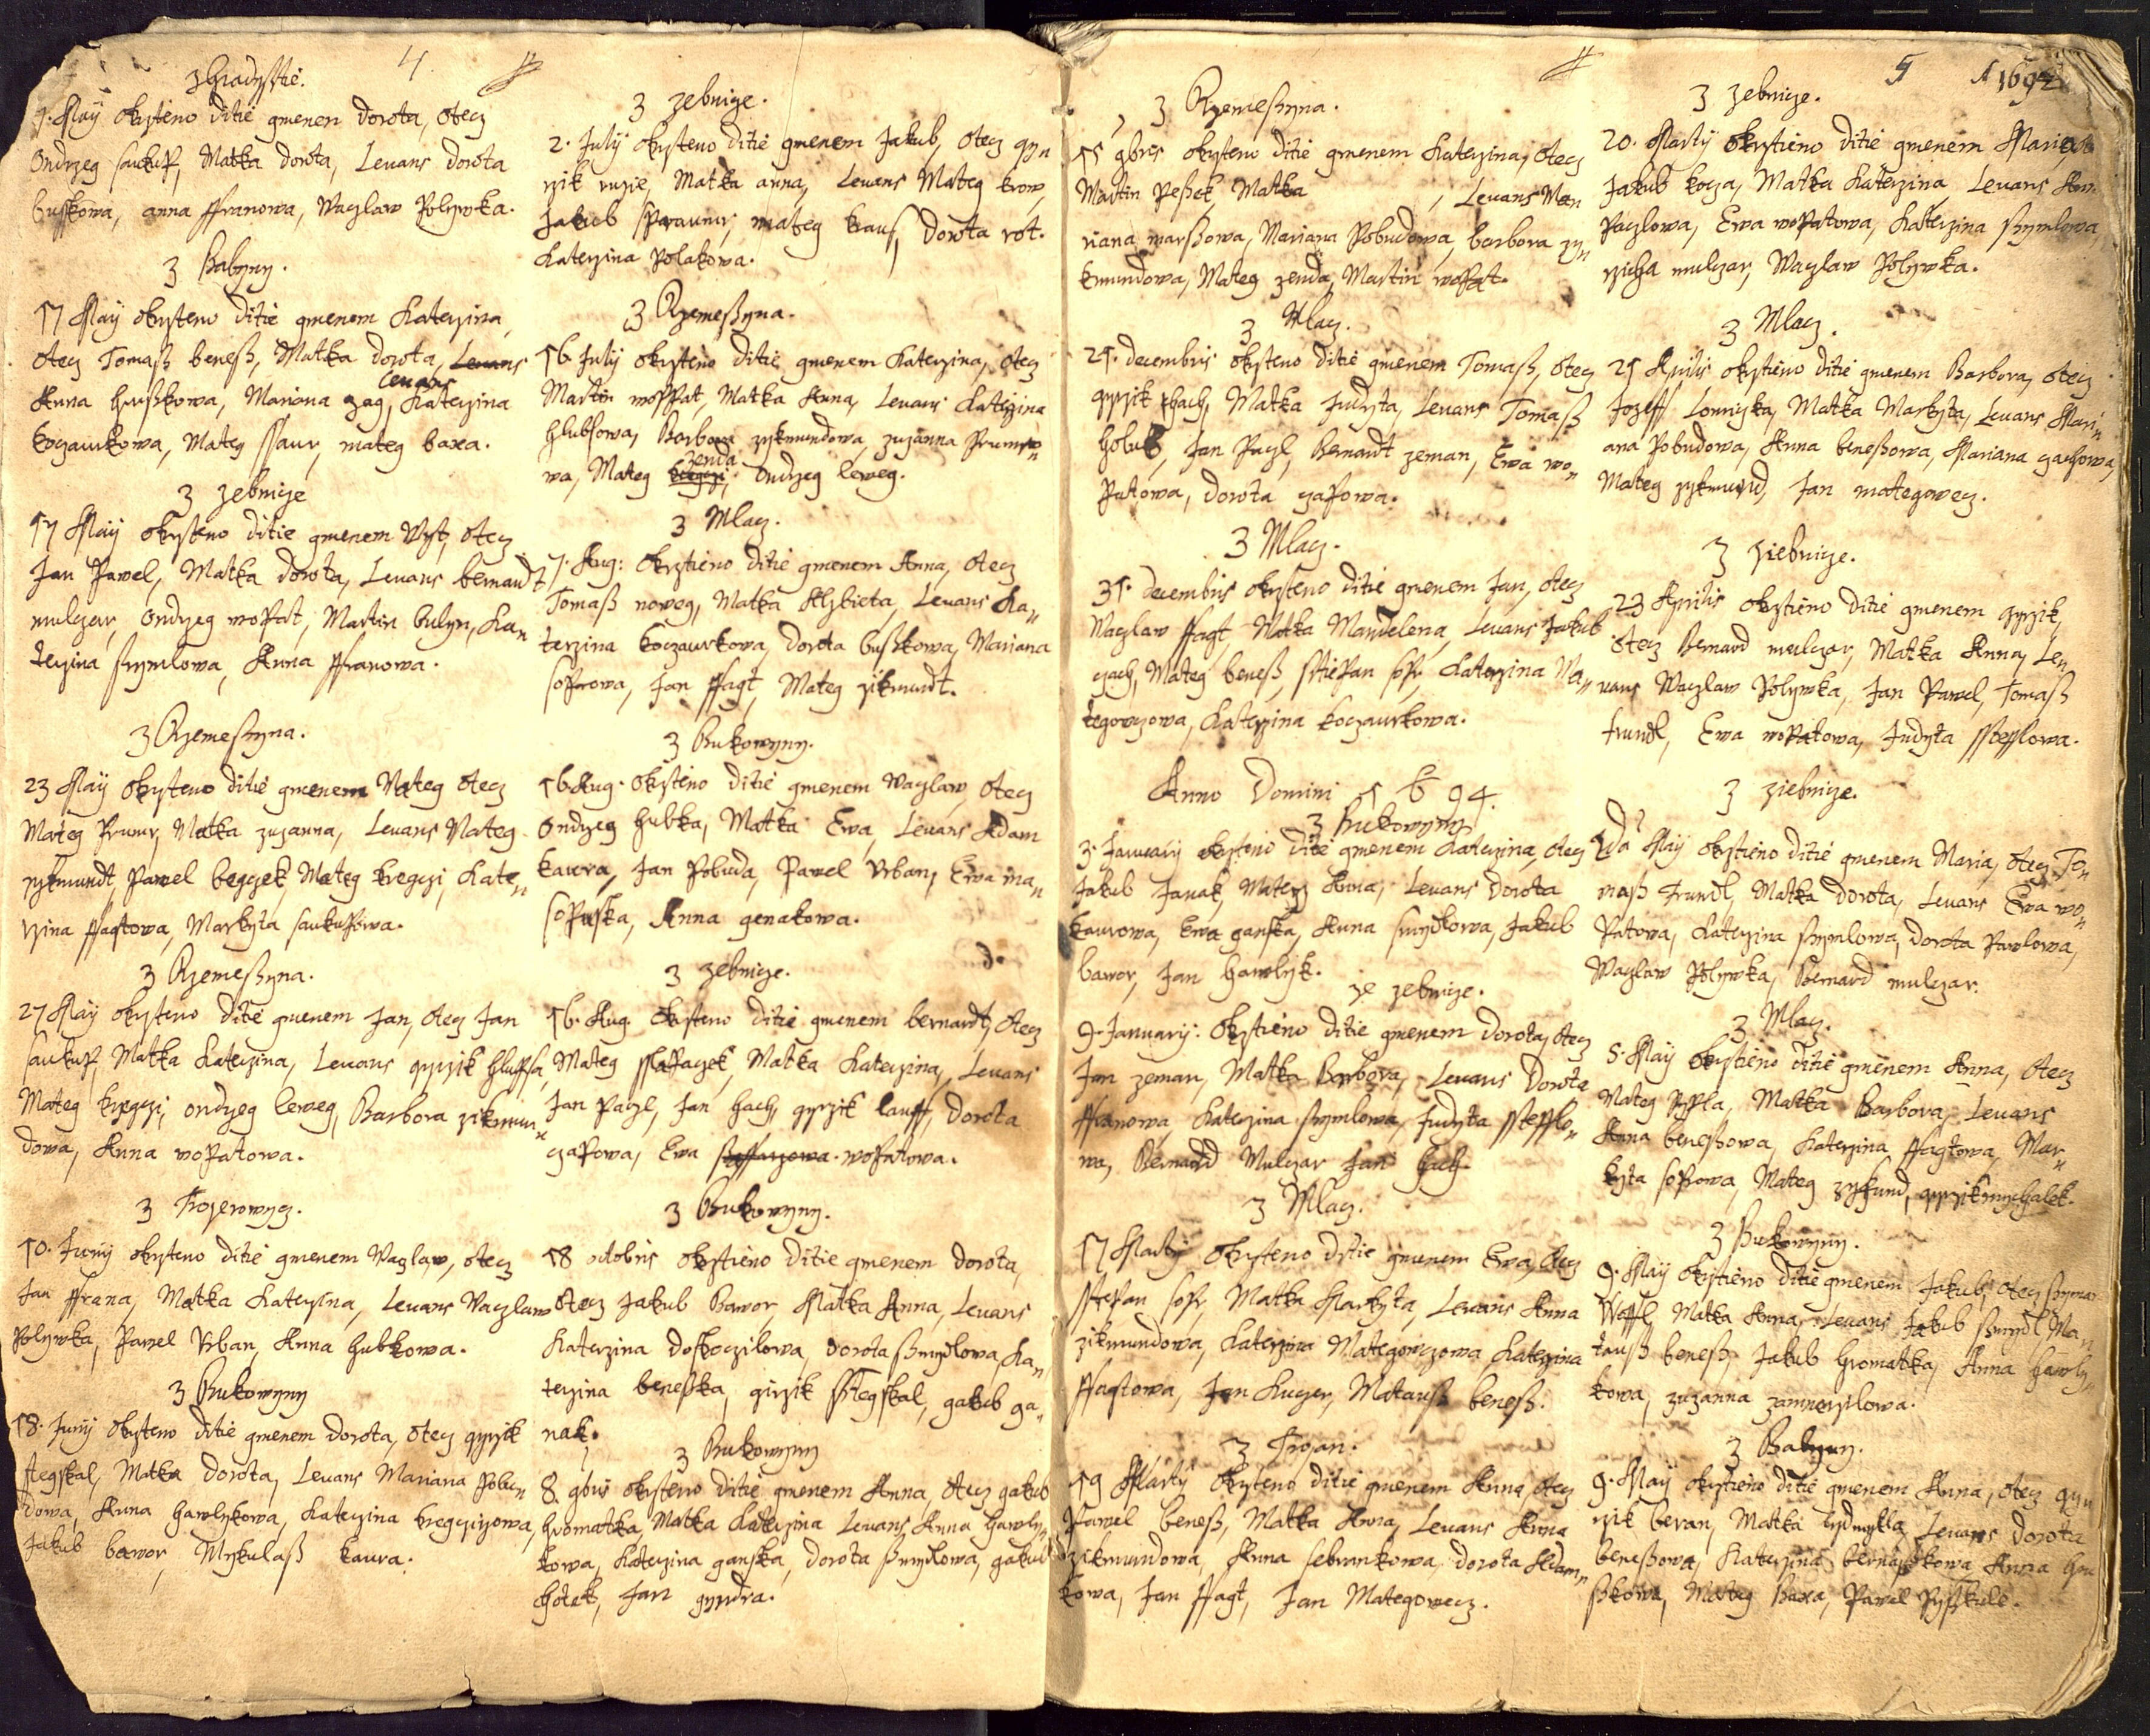 4
z Hradisstie.
7. Maÿ okrzteno ditie gmenem dorota, otecz
Ondrzeg saukup, Matka dorota, Leuans dorota
busskowa, anna ffranowa, Waczlaw Polywka.
z Babyny.
17 Maÿ okrzteno ditie gmenem Katerzina,
otecz Tomaß beneß, Matka dorota, Leuans
leuans
Anna hrußkowa, Mariana zag, Katerzina
koczaurkowa, Mateg ssaur, mateg baxa.
z zebnicze
17 Maÿ okrzteno ditie gmenem Wyt, otecz
Jan Pawel, Matka dorota, Leuans bernardt
mulczar, Ondrzeg wopat, Martin bulyn, Ka„
terzina srymlowa, Anna ffranowa.
z Rzemeßyna.
23 Maÿ okrzteno ditie gmenem Mateg otecz
Mateg Prunr, Matka zuzanna, Leuans Mateg
zykmundt, Pawel begczek, Mateg kregczi, Kate„
rzina ffagtowa, Markyta saukupowa.
z Rzemeßyna.
27 Maÿ okrzteno ditie gmenem Jan, otecz Jan
saukup, Matka Katerzina, Leuans gyrzik hlupsa,
Mateg kregczi, ondrzeg leweg, Barbora zikmun„
dowa, Anna wopatowa.
z Trogerowycz.
10. Junÿ okrzteno ditie gmenem Waczlaw, otecz
Jan ffrana, Matka Katerzina, Leuans Waczlaw
Polywka, Pawel Vrban, Anna hubkowa.
z Bukowyny
18. Junÿ okrzteno ditie gmenem dorota, otecz gyrzik
stegskal, Matka dorota, Leuans Mariana Pobu„
dowa, Anna hawlykowa, Katerzina kregczizowa,
Jakub bawor, Mykulaß kaura.
z zebnicze.
2. Julÿ okrzteno ditie gmenem Jakub, otecz gy„
rzik ruzie, Matka anna, Leuans Mateg krow,
Jakub sprauner, mateg kraus, dorota rot.
Katerzina Polakowa.
z Rzemeßyna.
16. Julÿ okrzteno ditie gmenem Katerzina, otecz
Martin woppat, Matka Anna, Leuans Katerzina
hlubsowa, Barbora zykmundowa, zuzanna Prunro„
zenda
wa, Mateg kregczi, Ondrzeg leweg.
z Mlacz.
7. Aug: okrztieno ditie gmenem Anna, otecz
Tomaß noweg, Matka Alzbieta, Leuans Ka„
terzina koczaurkowa, dorota bußkowa, Mariana
soprowa, Jan ffagt, Mateg zikmundt.
z Bukowyny.
16 Aug. okrzteno ditie gmenem Waczlaw, otecz
Ondrzeg hubka, Matka Ewa, Leuans Adam
kaura, Jan Pobuda, Pawel Vrban, Ewa ma„
sopustka, Anna genakowa.
z zebnicze.
16. Aug. okrzteno ditie gmenem bernardt, otecz
Mateg sslapaczek, Matka Katerzina, Leuans
Jan Paczl, Jan hach, gyrzik lauff, dorota
czapowa, Ewa wopatowa.
z Bukowyny.
18 octobris okrztieno ditie gmenem dorota,
otecz Jakub Bawor, Matka Anna, Leuans
Katerzina doskoczilowa, dorota ßmydlowa, Ka„
terzina beneßka, girzik sstegskal, gakub ga„
nak.
z Bukowyny
8. 9bris okrzteno ditie gmenem Anna, otecz gakub
hromatka, Matka Katerzina Leuans Anna hawly„
kowa, Katerzina ganska, dorota ßmydlowa, gakub
hotek, Jan gyndra.
5 A 1694
z Rzemeßyna.
15 9bris okrzteno ditie gmenem Katerzina, otecz
Martin Peßek Matka , Leuans Ma„
riana marßowa, Mariana Pobudowa, barbora zy„
kmundowa, Mateg zenda, Martin wopat.
z Mlacz.
21. decembris okrzteno ditie gmenem Tomaß, otecz
gyrzik hach, Matka Judyta, Leuans Tomaß
holub, Jan Paczl, Bernardt zeman, Ewa wo„
patowa, dorota czapowa.
z Mlacz.
31. decembris okrzteno ditie gmenem Jan, otecz
Waczlaw ffagt, Matka Mandelena, Leuans Jakub
czach, Mateg beneß, sstiepan sopr, Katerzina Ma„
tegowczowa, Katerzina koczaurkowa.
Anno Domini 1694.
z Bukowyny
3. Januarÿ okrzteno ditie gmenem Katerzina, otecz
Jakub Janak, Matcz Anna, Leuans dorota
kaurowa, Ewa ganska, Anna smydlowa, Jakub
bawor, Jan hawlyk.
ze zebnicze.
9. Januarÿ: okrztieno ditie gmenem dorota, otecz
Jan zeman, Matka Barbora, Leuans dorota
ffranowa, Katerzina srymlowa, Judyta ssteflo„
wa, Bernard Mulczar Jan hach.
z Mlacz.
17 Martÿ okrzteno ditie gmenem Ewa, otecz
sstepan sopr, Matka Markyta, Leuans Anna
zikmundowa, Katerzina Mategowczowa Katerzina
ffagtowa, Jan Kuczer, Matauß beneß.
z Trojan.
19 Martÿ okrzteno ditie gmenem Anna, otecz
Pawel beneß, Matka Anna, Leuans Anna
zikmundowa, Anna sebrankowa, dorota Adam„
kowa, Jan ffagt, Jan Mategowecz.
z zebnicze.
20. Martÿ okrztieno ditie gmenem Maria, otecz
Jakub kocza, Matka Katerzina Leuans Anna
Paczlowa, Ewa wopatowa, Katerzina srymlowa,
rzicha mulczar, Waczlaw Polywka.
z Mlacz.
21 Aprilis okrztieno ditie gmenem Barbora, otecz
Jozeff Lomiczka, Matka Markyta, Leuans Mari„
ana Pobudowa, Anna beneßowa, Mariana czachowa,
Mateg zykmund, Jan mategowecz.
z ziebnicze.
23 Aprilis okrztieno ditie gmenem gyrzik,
otecz Bernard mulczar, Matka Anna, Leu„
vans Waczlaw Polywka, Jan Pawel, Tomaß
trundl, Ewa wopatowa, Judyta ssteflowa.
z ziebnicze.
2da Maÿ okrztieno ditie gmenem Maria, otecz To„
maß Trundl, Matka dorota, Leuans Ewa wo„
patowa, Katerzina srymlowa, dorota Pawlowa,
Waczlaw Polywka, Bernard mulczar.
z Mlacz.
5. Maÿ okrztieno ditie gmenem Anna, otecz
Mateg Rypla, Matka Barbora, Leuans
Anna beneßowa, Katerzina ffagtowa, Mar„
kyta soprowa, Mateg zykund, gyrzik mychalek.
z Bukowyny.
9. Maÿ okrztieno ditie gmenem Jakub, otecz ßyman
Matka Anna, Leuans Jakub ßmydl Ma„
tauß beneß, Jakub hromatka, Anna hawly„
kowa, zuzanna zamrzilowa.
z Babyny.
9. Maÿ okrztieno ditie gmenem Anna, otecz gy„
rzik beran, Matka lydmyla, Leuans dorota
beneßowa, Katerzina bernaßkowa Anna hru
ßkowa, Mateg Baxa, Pawel Pysskule.